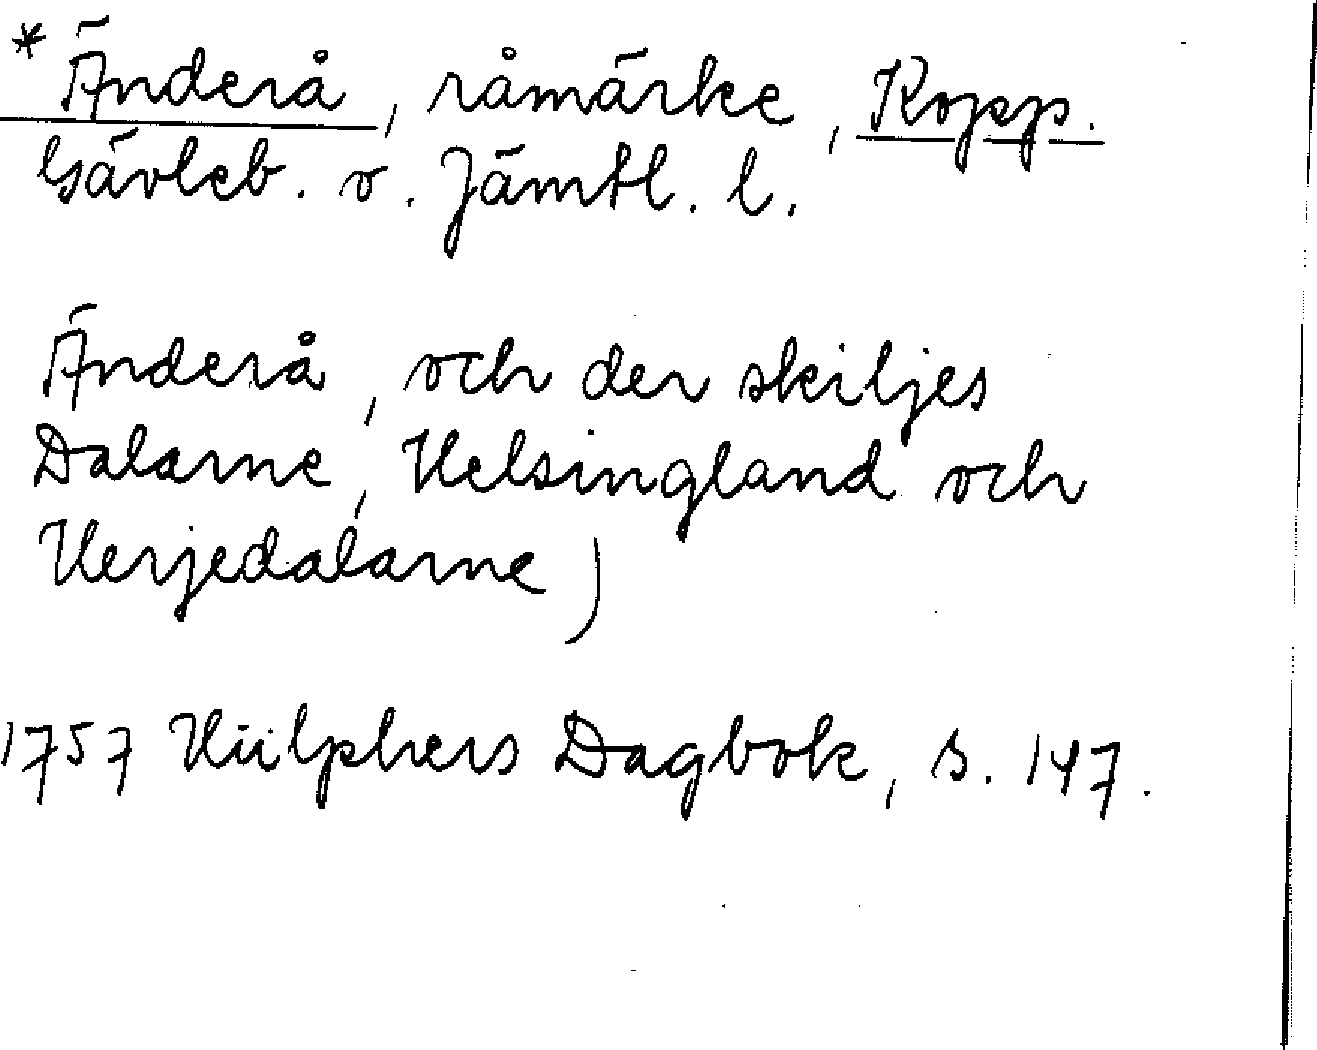 * Änderå, råmärke, Kopp.
Gävleb. o. Jämtl. l.
Änderå, och der skiljes
Dalarne, Helsingland och
Herjedalarne)
1757 Hülphers Dagbok, s. 147.